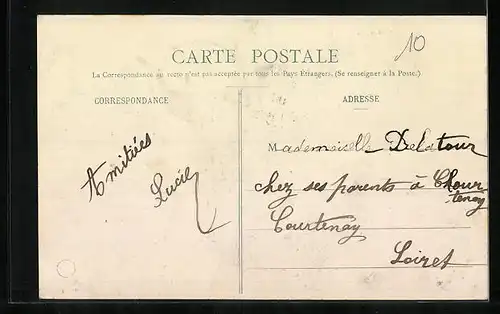 10
CARTE POSTALE
La Correspondance au recto n'est pas acceptée par tous les Pays Étrangers. (Se renseigner à la Poste.)
CORRESPONDANCE
Amitiées
Lucie
ADRESSE
Mademoiselle Delatour
chez ses parents à Chour-
tenay
Courtenay
Loiret